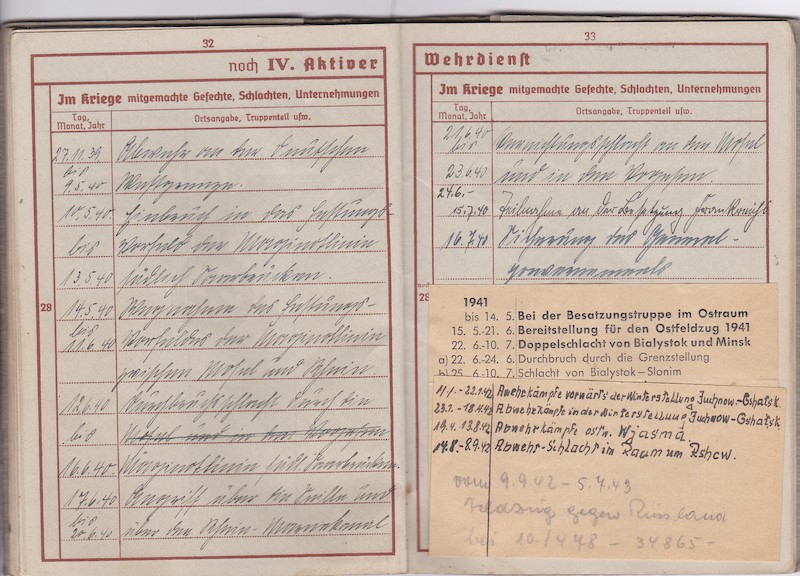 32
noch IV. Aktiver
Im Kriege mitgemachte Gefechte, Schlachten, Unternehmungen
Tag, Monat, Jahr
Ortsangabe, Truppenteil usw.
27.11.39 Abwehr an der Deutschen
bis
9.5.40 Westgrenze.
10.5.40 Einbruch in das Festungs-
bis Vorfeld der Marginotlinie
13.5.40 südlich Saarbrücken.
28
14.5.40 Wegnahme des Festungs-
bis
11.6.40 Vorfeldes der Marginotlinie
zwischen Mosel und Rhein
12.6.40 Durchbruchschlacht durch die
bis Mosel und in den Vogesen
16.6.40 Marginotlinie südl. Saarbrücken
17.6.40 Angriff über die Seille und
bis
20.6.40 über den Rhein-Marnekanal
33
Wehrdienst
Im Kriege mitgemachte Gefechte, Schlachten, Unternehmungen
Tag, Monat, Jahr
Ortsangabe, Truppenteil usw.
21.6.40 Vernichtungsschlacht an der Mosel
bis
23.6.40 und in den Vogesen.
24.6.-
15.7.40 Teilnahme an der Besetzung Frankreichs
16.7.40 Sicherung des General-
gouvernements
28
1941
bis 14. 5. Bei der Besatzungstruppe im Ostraum
15. 5.-21. 6. Bereitstellung für den Ostfeldzug 1941
22. 6.-10. 7. Doppelschlacht von Bialystok und Minsk
a) 22. 6.-24. 6. Durchbruch durch die Grenzstellung
b) 25. 6.-10. 7. Schlacht von Bialystok - Slonim
11.1.-22.1.42 Awehrkämpfe vorwärts der Winterstellung Juchnow-Gshatsk.
23.1.-18.4.42 Abwehrkämpfe in der Winterstellung Juchnow-Gshatsk
19.4.-13.8.42 Abwehrkämpfe ostw. Wjasma
14.8.-8.9.42 Abwehr-Schlacht im Raum um Rshew.
vom 9.9.42 - 5.7.43
Feldzug gegen Russland
bei 10./478 - 34865 -